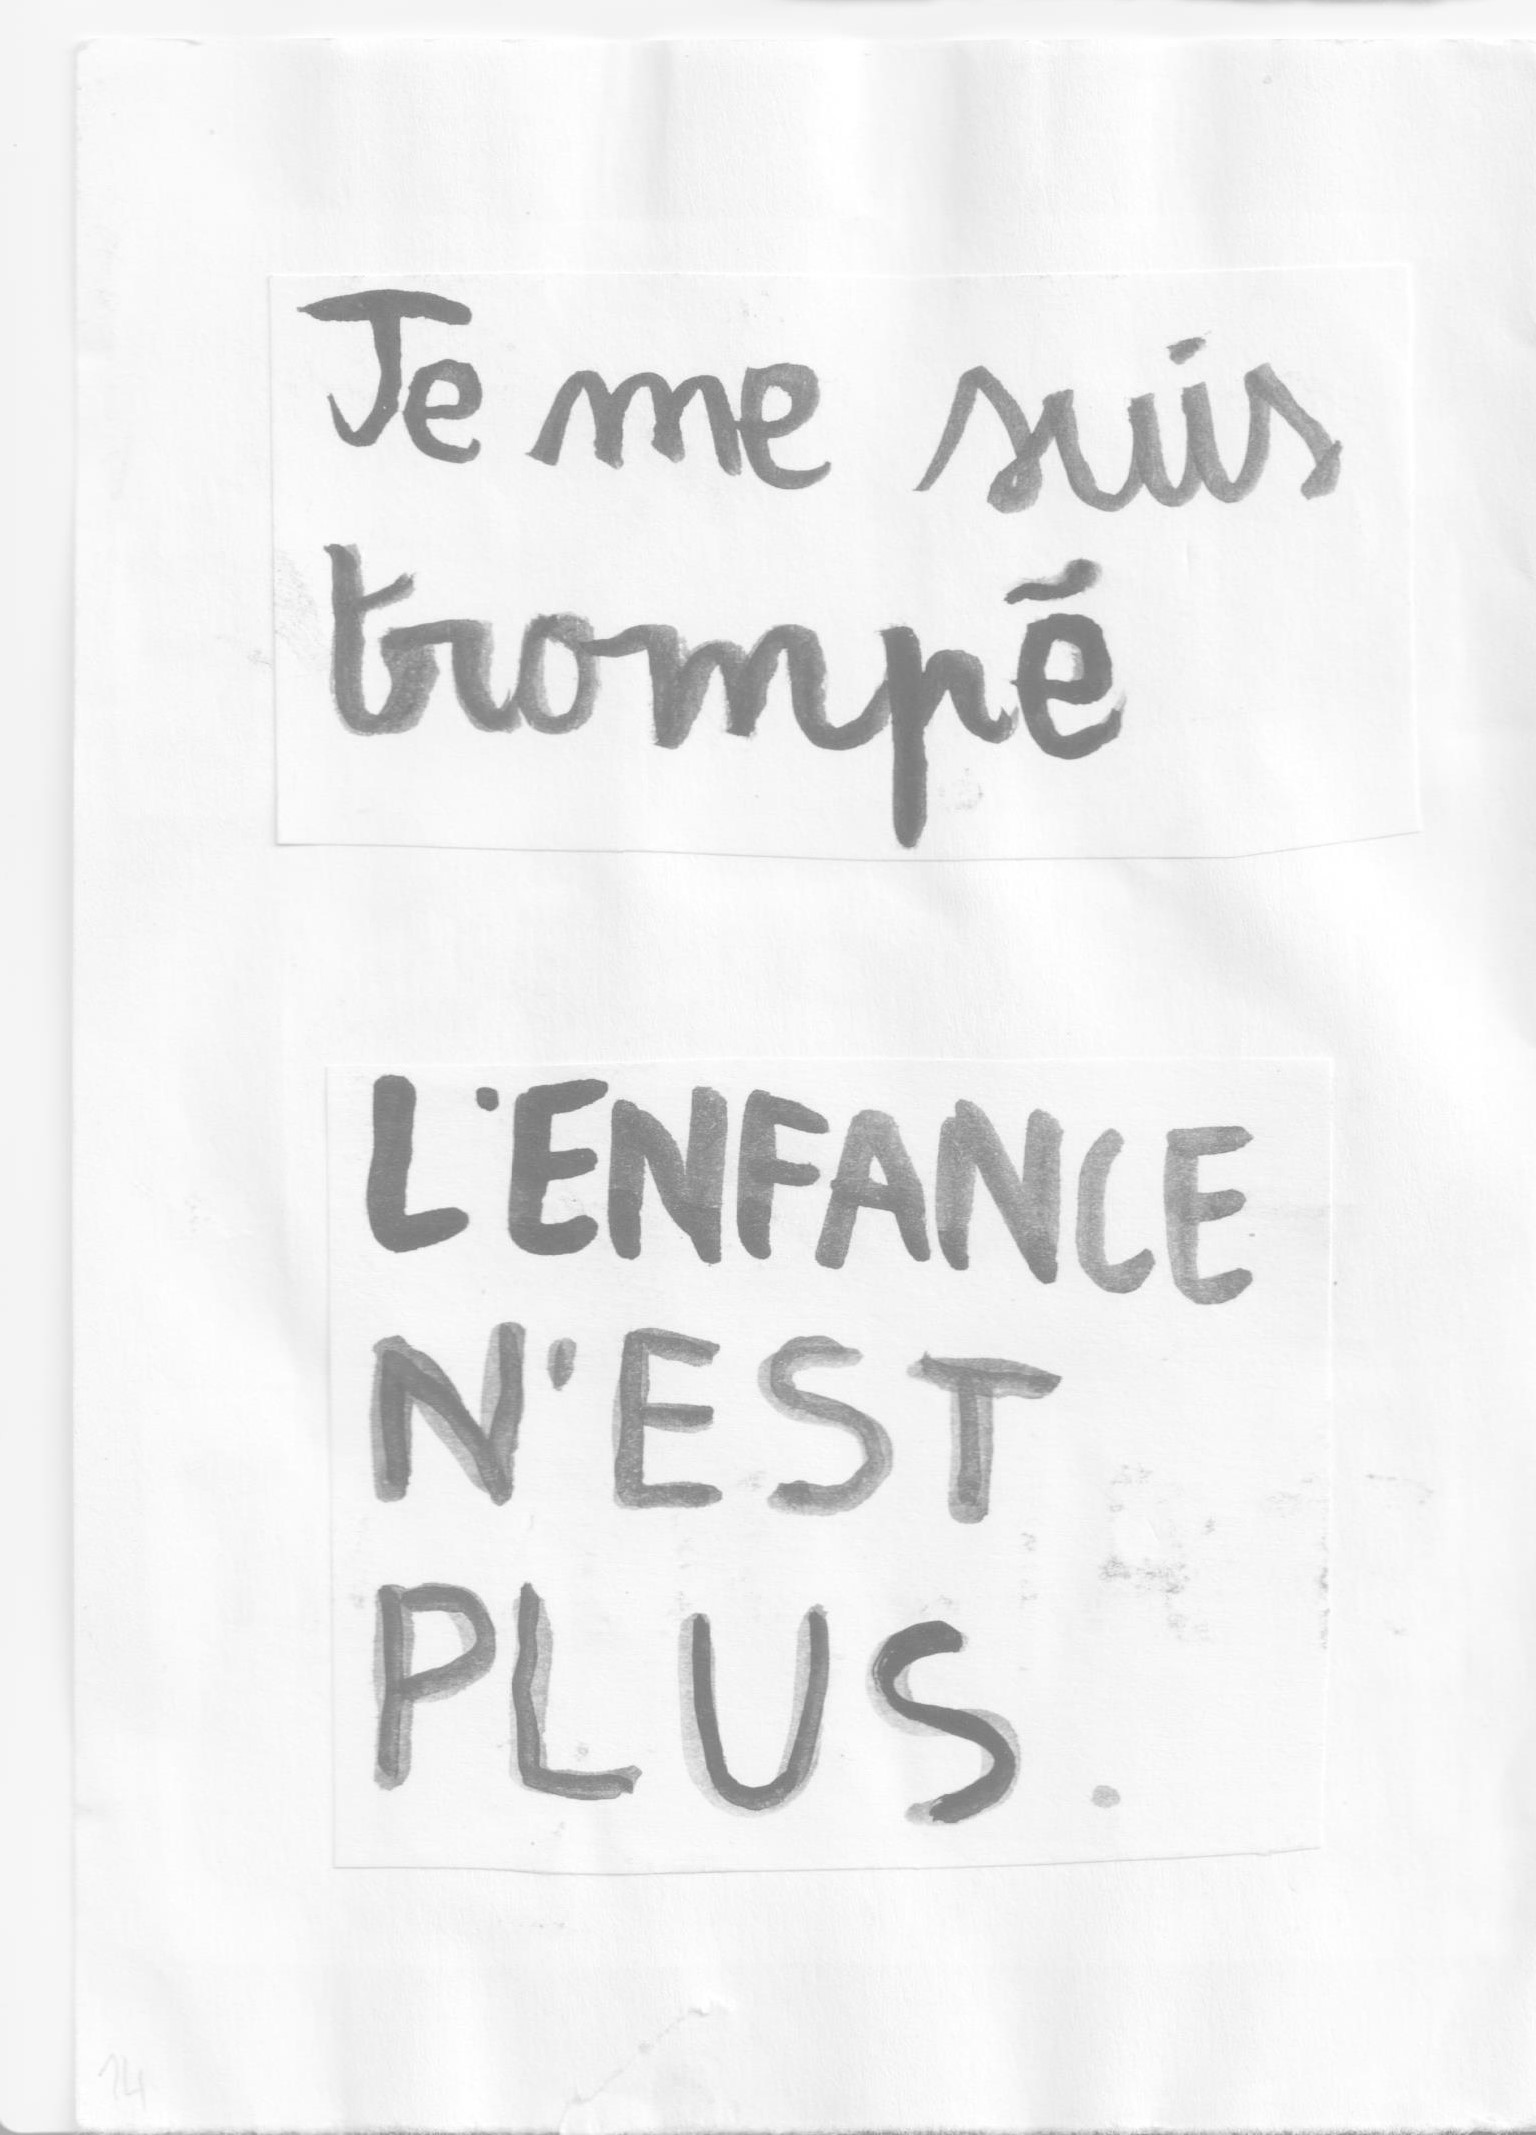 Je me suis
trompé
L'ENFANCE
N'EST
PLUS.
14